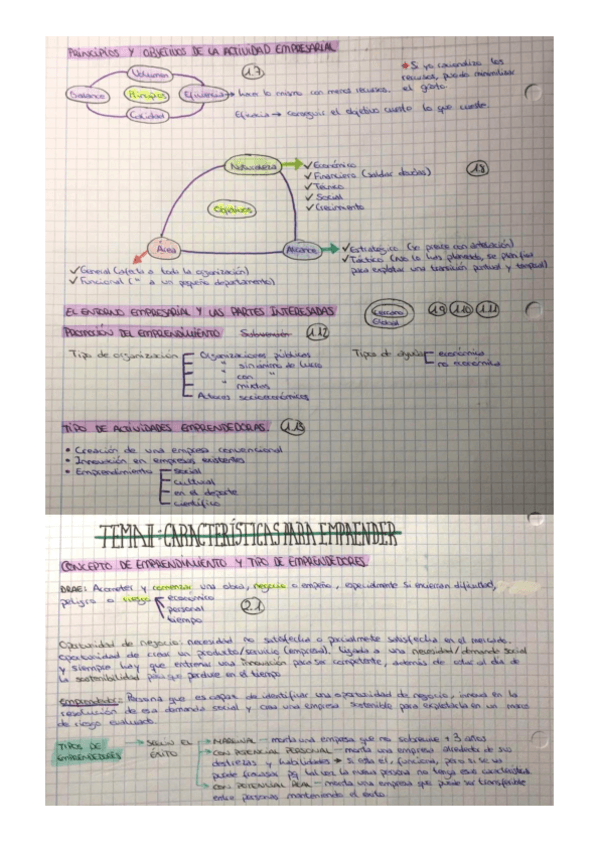 PRINCIPIOS Y OBJETIVOS DE LA ACTIVIDAD EMPRESARIAL
Volumen
1.7
* Si yo
los
recursos, puedo minimizar
el gasto.
Balance
Principios
Eficiencia → hacer lo mismo con menos recursos.
Calidad
Eficacia → conseguir el objetivo cueste lo que cueste.
Naturaleza
✓ Económico
✓ Financiera (saldar deudas)
✓ Técnico
✓ Social
✓ Crecimiento
1.8
Objetivos
Área
Alcance
✓ Estratégico (se prevee con antelación)
✓ Táctico (no lo has planeado, se planifica
para explotar una transición puntual y temporal)
✓ General (afecta a toda la organización)
✓ Funcional (" a un pequeño departamento)
EL ENTORNO EMPRESARIAL Y LAS PARTES INTERESADAS
Cercano
Global
1.9 1.10 1.11
PROMOCIÓN DEL EMPRENDIMIENTO
Subvención
1.12
Tipo de organización
Organizaciones públicas
" sin animo de lucro
" con "
" mixtas
Actores socioeconómicos
Tipos de ayuda
económica
no económica
TIPO DE ACTIVIDADES EMPRENDEDORAS.
1.13
• Creación de una empresa convencional
• Innovación en empresas existentes
• Emprendimiento
social
cultural
en el deporte
científico
TEMA II: CARACTERÍSTICAS PARA EMPRENDER
CONCEPTO DE EMPRENDIMIENTO Y TIPO DE EMPRENDEDORES.
DRAE: Acometer y comenzar una obra, negocio o empeño, especialmente si encierran dificultad,
peligro o riesgo
económico
personal
tiempo
2.1
Oportunidad de negocio: necesidad no satisfecha o parcialmente satisfecha en el mercado.
Oportunidad de crear un producto/servicio (empresa). Ligada a una necesidad/demanda social
y siempre hay que entrenar una innovación para ser competente, además de estar al día de
la sostenibilidad para que perdure en el tiempo
Emprendedor: Persona que es capaz de identificar una oportunidad de negocio, innova en la
resolución de esa demanda social y crea una empresa sostenible para explotarla en un marco
de riesgo evaluado.
TIPOS DE
EMPRENDEDORES
SEGÚN EL
ÉXITO
MARGINAL - monta una empresa que no sobrevive + 3 años
CON POTENCIAL PERSONAL - monta una empresa alrededor de sus
destrezas y habilidades → si está él, funciona, pero si se va
puede fracasar pq tal vez la nueva persona no tenga esas características
CON POTENCIAL REAL - monta una empresa que puede ser transferible
entre personas manteniendo el éxito.